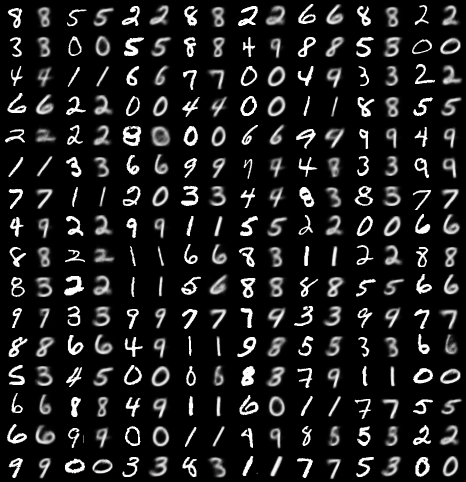 8 8 5 5 2 2 8 8 2 2 6 6 8 8 2 2
3 8 0 0 5 5 8 8 4 9 8 8 5 3 0 0
4 4 1 1 6 6 7 7 0 0 4 9 3 3 2 2
6 6 2 2 0 0 4 4 0 0 1 1 8 8 5 5
2 2 2 2 8 0 0 0 6 6 9 9 9 9 4 9
1 1 3 3 6 6 9 9 4 4 8 3 3 9 9
7 7 1 1 2 0 3 3 4 4 8 3 8 3 7 7
4 9 2 2 9 9 1 1 5 5 2 2 0 0 6 6
8 8 2 2 1 1 6 6 8 3 1 1 2 2 8 8
8 3 2 2 1 1 5 6 8 8 8 8 5 5 6 6
9 9 3 3 9 9 7 7 7 9 3 3 9 9 7 7
8 8 6 6 4 9 1 1 9 8 5 5 3 3 6 6
5 3 4 5 0 0 0 6 8 8 7 9 1 1 0 0
6 6 8 8 4 9 1 1 6 0 1 1 7 7 5 5
6 6 9 9 0 0 1 1 4 9 8 5 5 3 2 2
9 9 0 0 3 3 8 3 1 1 7 7 5 3 0 0